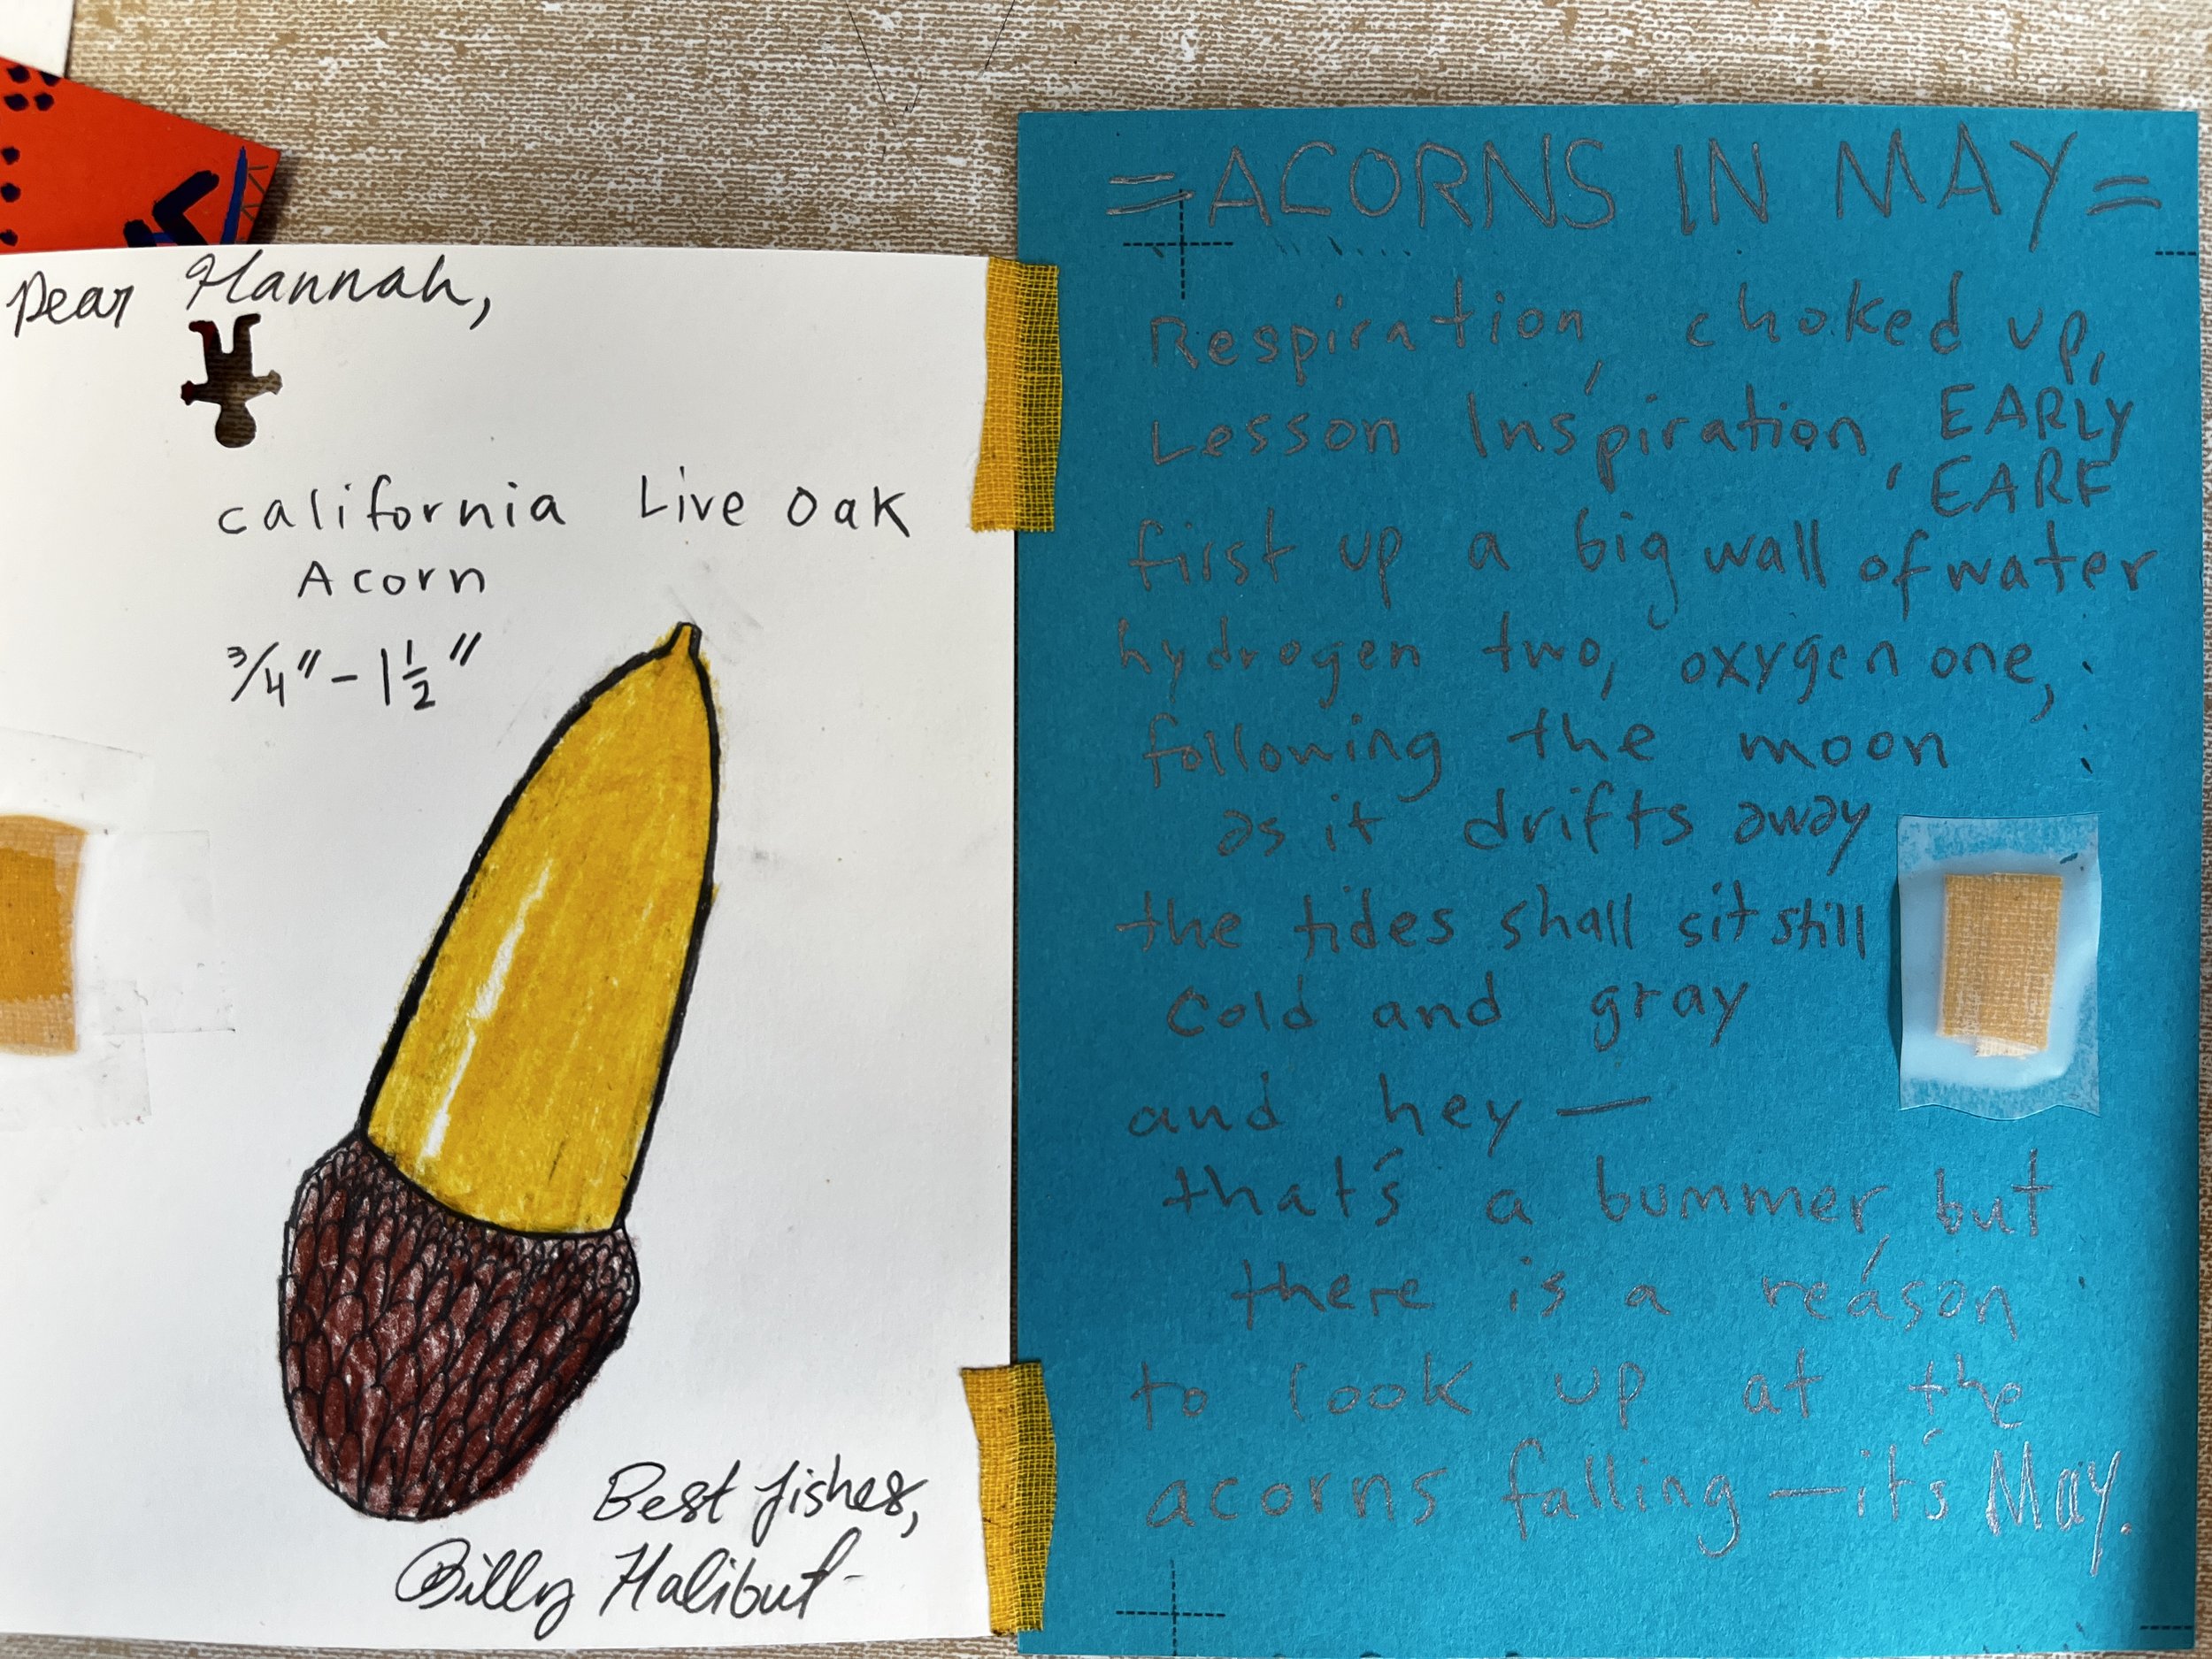 Dear Hannah,
California Live Oak
Acorn
3/4" - 1 1/2"
Best fishes,
Billy Halibut
= ACORNS IN MAY =
Respiration, choked up,
Lesson Inspiration, EARLY
EARF
first up a big wall of water
hydrogen two, oxygen one,
following the moon
as it drifts away
the tides shall sit still
cold and gray
and hey —
that's a bummer, but
there is a reason
to look up at the
acorns falling — it's May.